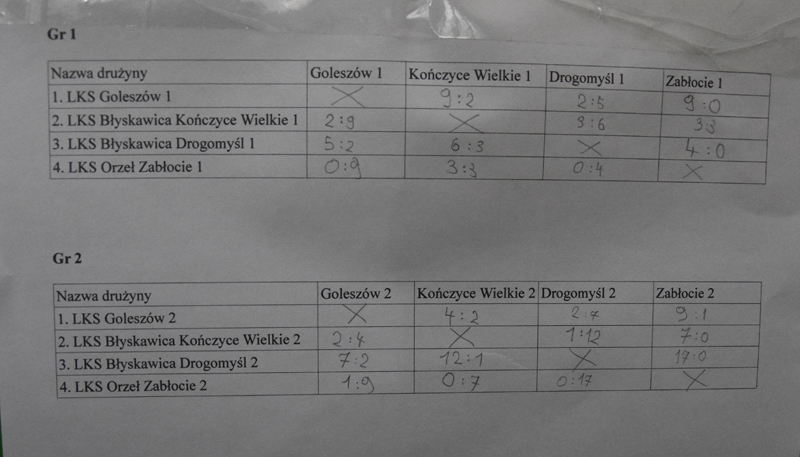 Gr 1
Nazwa drużyny Goleszów 1 Kończyce Wielkie 1 Drogomyśl 1 Zabłocie 1
1. LKS Goleszów 1 X 9:2 2:5 9:0
2. LKS Błyskawica Kończyce Wielkie 1 2:9 X 3:6 3:3
3. LKS Błyskawica Drogomyśl 1 5:2 6:3 X 4:0
4. LKS Orzeł Zabłocie 1 0:9 3:3 0:4 X
Gr 2
Nazwa drużyny Goleszów 2 Kończyce Wielkie 2 Drogomyśl 2 Zabłocie 2
1. LKS Goleszów 2 X 4:2 2:7 9:1
2. LKS Błyskawica Kończyce Wielkie 2 2:4 X 1:12 7:0
3. LKS Błyskawica Drogomyśl 2 7:2 12:1 X 17:0
4. LKS Orzeł Zabłocie 2 1:9 0:7 0:17 X